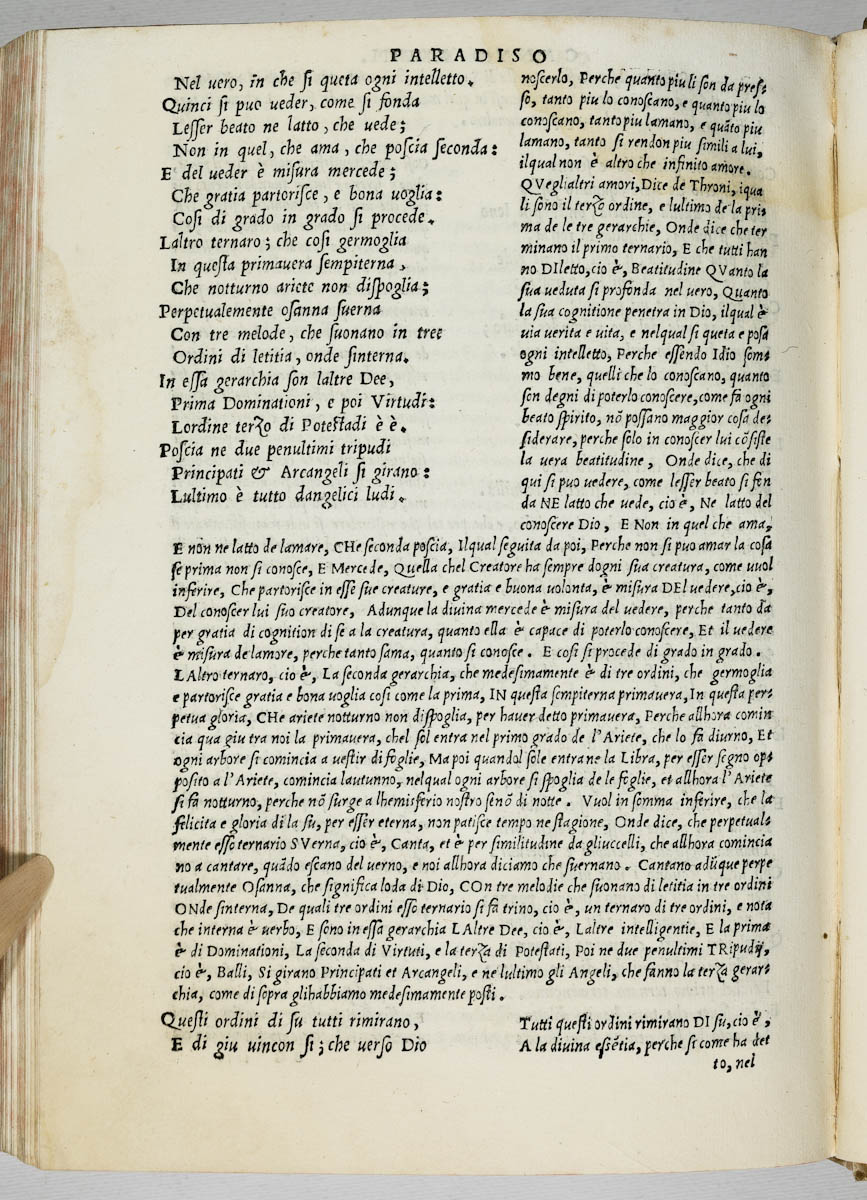 PARADISO
Nel uero, in che si queta ogni intelletto.
Quinci si puo ueder, come si fonda
Lesser beato ne latto, che uede;
Non in quel, che ama, che poscia seconda:
E del ueder è misura mercede;
Che gratia partorisce, e bona uoglia:
Cosi di grado in grado si procede.
Laltro ternaro; che cosi germoglia
In questa primauera sempiterna,
Che notturno ariete non dispoglia;
Perpetualemente osanna suerna
Con tre melode, che suonano in tree
Ordini di letitia, onde sinterna.
In essa gerarchia son laltre Dee,
Prima Dominationi, e poi Virtudi:
Lordine terzo di Potestadi è è.
Poscia ne due penultimi tripudi
Principati & Arcangeli si girano:
Lultimo è tutto dangelici ludi.
noscerlo, Perche quanto piu li son da pres-
so, tanto piu lo conoscano, e quanto piu lo
conoscano, tanto piu lamano, e quãto piu
lamano, tanto si rendon piu simili a lui,
ilqual non è altro che infinito amore.
QVegli altri amori, Dice de Throni, i qua
li sono il terzo ordine, e lultimo de la pri-
ma de le tre gerarchie, Onde dice che ter
minano il primo ternario, E che tutti han
no DIletto, cio è, Beatitudine QVanto la
sua ueduta si profonda nel uero, Quanto
la sua cognitione penetra in Dio, ilqual è
uia uerita e uita, e nelqual si queta e posa
ogni intelletto, Perche essendo Idio som-
mo bene, quelli che lo conoscano, quanto
son degni di poterlo conoscere, come fa ogni
beato spirito, nõ possano maggior cosa de-
siderare, perche solo in conoscer lui cõsiste
la uera beatitudine, Onde dice, che di
qui si puo uedere, come lesser beato si fon
da NE latto che uede, cio è, Ne latto del
conoscere Dio, E Non in quel che ama,
E non ne latto de lamare, CHe seconda poscia, Ilqual seguita da poi, Perche non si puo amar la cosa
se prima non si conosce, E Mercede, Quella chel Creatore ha sempre dogni sua creatura, come uuol
inferire, Che partorisce in esse sue creature, e gratia e buona uolonta, è misura DEl uedere, cio è,
Del conoscer lui suo creatore, Adunque la diuina mercede è misura del uedere, perche tanto da
per gratia di cognition di se a la creatura, quanto ella è capace di poterlo conoscere, Et il uedere
è misura de lamore, perche tanto sama, quanto si conosce. E cosi si procede di grado in grado.
LAltro ternaro, cio è, La seconda gerarchia, che medesimamente è di tre ordini, che germoglia
e partorisce gratia e bona uoglia cosi come la prima, IN questa sempiterna primauera, In questa per-
petua gloria, CHe ariete notturno non dispoglia, per hauer detto primauera, Perche allhora comin
cia qua giu tra noi la primauera, chel sol entra nel primo grado de l'Ariete, che lo fa diurno, Et
ogni arbore si comincia a uestir di foglie, Ma poi quandol sole entrane la Libra, per esser segno op-
posito a l'Ariete, comincia lautunno, nelqual ogni arbore si spoglia de le foglie, et allhora l'Ariete
si fa notturno, perche nõ surge a lhemisferio nostro senõ di notte. Vuol in somma inferire, che la
felicita e gloria di la su, per esser eterna, non patisce tempo ne stagione, Onde dice, che perpetual-
mente esso ternario SVerna, cio è, Canta, et è per similitudine da gliuccelli, che allhora comincia
no a cantare, quãdo escano del uerno, e noi allhora diciamo che suernano. Cantano adũque perpe
tualmente Osanna, che significa loda di Dio, COn tre melodie che suonano di letitia in tre ordini
ONde sinterna, De quali tre ordini esso ternario si fa trino, cio è, un ternaro di tre ordini, e nota
che interna è uerbo, E sono in essa gerarchia LAltre Dee, cio è, Laltre intelligentie, E la prima
è di Dominationi, La seconda di Virtuti, e la terza di Potestati, Poi ne due penultimi TRipudij,
cio è, Balli, Si girano Principati et Arcangeli, e ne lultimo gli Angeli, che fanno la terza gerar-
chia, come di sopra glihabbiamo medesimamente posti.
Questi ordini di su tutti rimirano,
E di giu uincon si; che uerso Dio
Tutti questi ordini rimirano DI su, cio è,
A la diuina essẽtia, perche si come ha det
to, nel